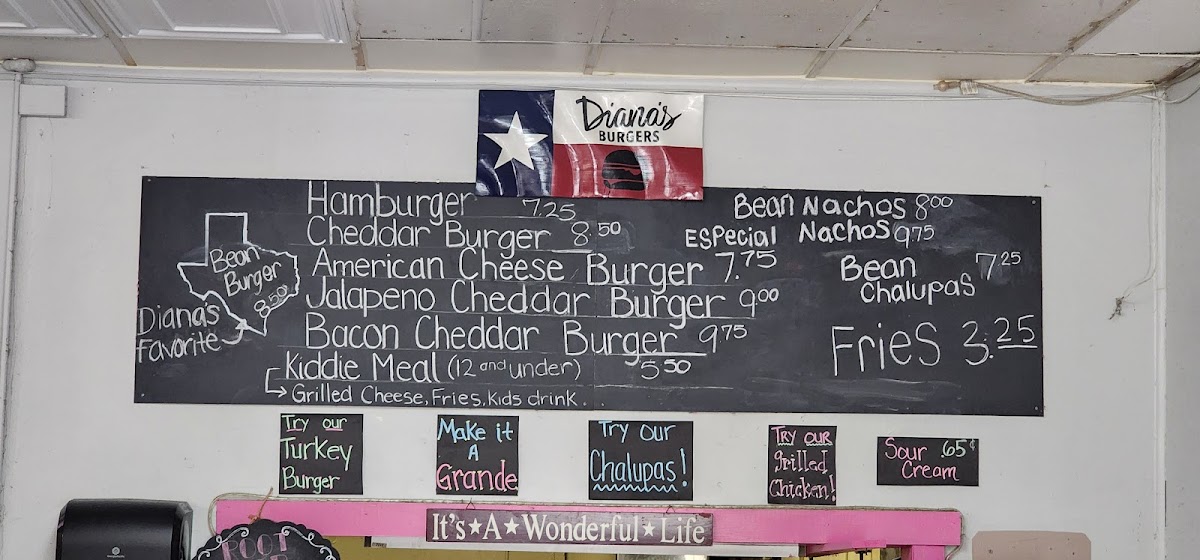 Diana's
BURGERS
Bean
Burger
8.50
Diana's
Favorite
Hamburger 7.25
Cheddar Burger 8.50
American Cheese Burger 7.75
Jalapeno Cheddar Burger 9.00
Bacon Cheddar Burger 9.75
Kiddie Meal (12 and under) 5.50
Grilled Cheese, Fries, kids drink...
Bean Nachos 8.00
ESPecial Nachos 9.75
Bean 7.25
Chalupas
Fries 3.25
Try our
Turkey
Burger
Make it
A
Grande
Try Our
Chalupas!
Try our
grilled
Chicken!
Sour .65¢
Cream
It's★A★Wonderful★Life
ROOT